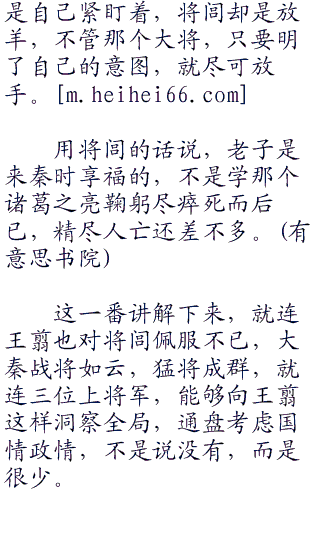 是自己紧盯着，将闾却是放
羊，不管那个大将，只要明
了自己的意图，就尽可放
手。[m.heihei66.com]
用将闾的话说，老子是
来秦时享福的，不是学那个
诸葛之亮鞠躬尽瘁死而后
已，精尽人亡还差不多。(有
意思书院)
这一番讲解下来，就连
王翦也对将闾佩服不已，大
秦战将如云，猛将成群，就
连三位上将军，能够向王翦
这样洞察全局，通盘考虑国
情政情，不是说没有，而是
很少。